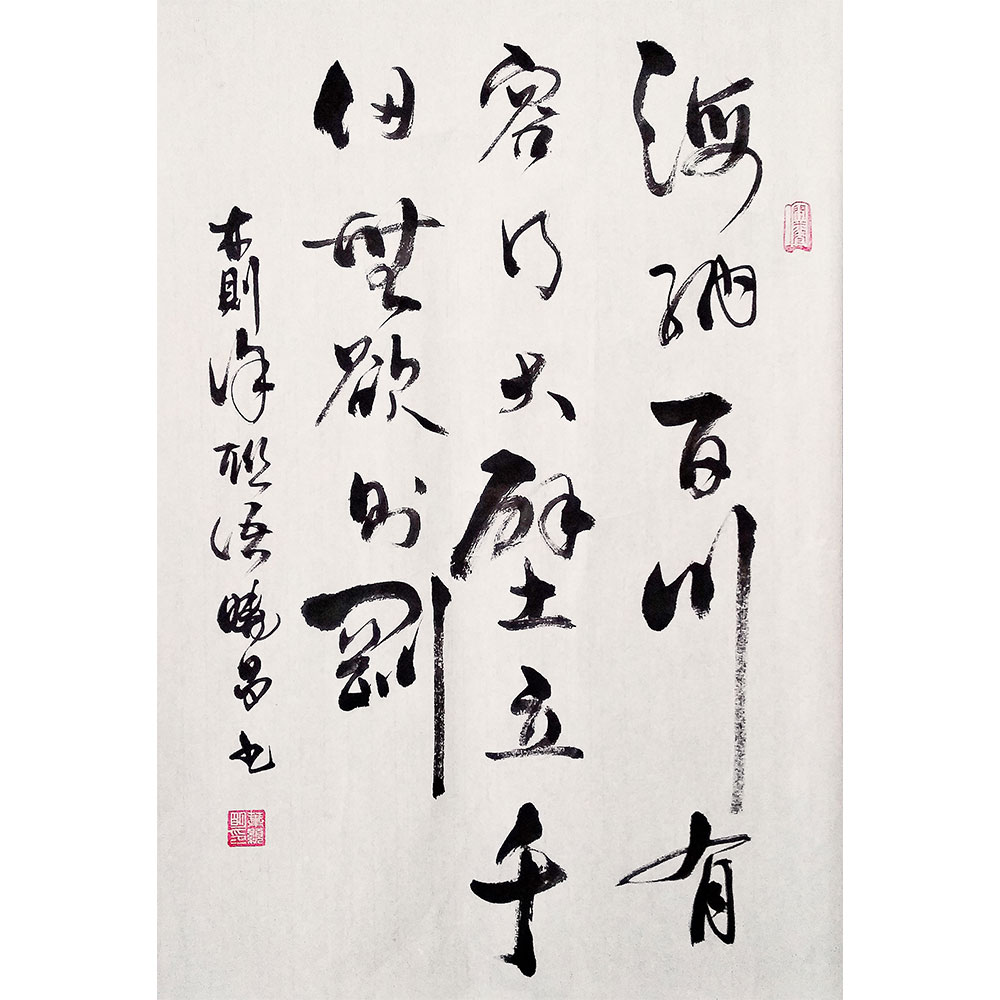 海納百川有
容乃大壁立千
仞無欲則剛
林則徐聯語曉昌書